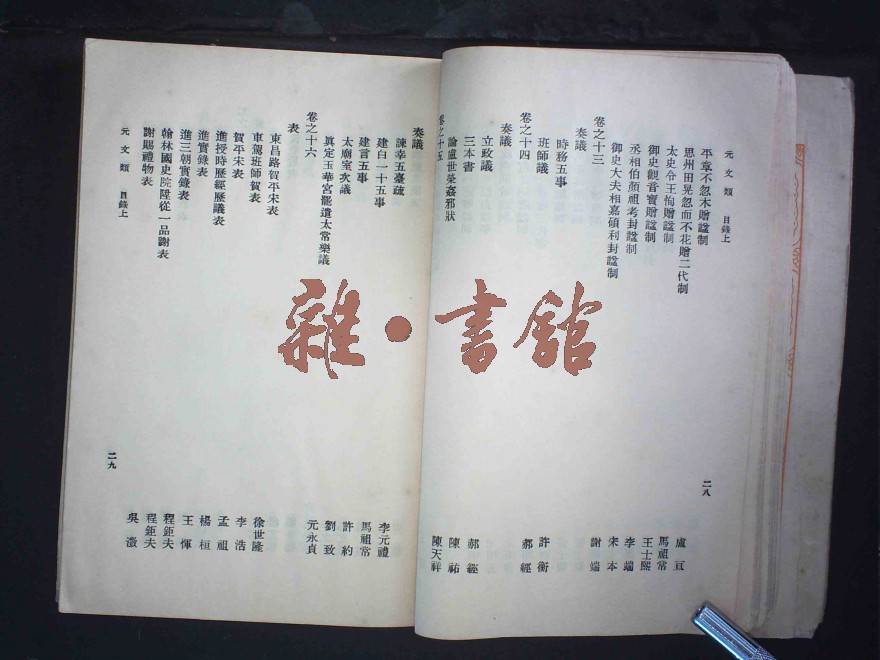 元文類 目錄上
平章不忽木贈諡制 盧亘
思州田晃忽而不花贈二代制 馬祖常
太史令王恂贈諡制 王士熙
御史觀音寶贈諡制 李端
丞相伯顏祖考封諡制 宋本
御史大夫相嘉碩利封諡制 謝端
卷之十三
奏議
時務五事 許衡
班師議 郝經
卷之十四
奏議
立政議 郝經
三本書 陳祐
論盧世榮姦邪狀 陳天祥
卷之十五
二八
奏議
諫幸五臺疏 李元禮
建白一十五事 馬祖常
建言五事 許約
太廟室次議 劉致
眞定玉華宮罷遣太常樂議 元永貞
卷之十六
表
東昌路賀平宋表 徐世隆
車駕班師賀表 李浩
賀平宋表 孟祺
進授時曆經曆議表 楊桓
進實錄表 王惲
進三朝實錄表 程鉅夫
翰林國史院陞從一品謝表 程鉅夫
謝賜禮物表 吳澂
元文類 目錄上
二九
雜·書館